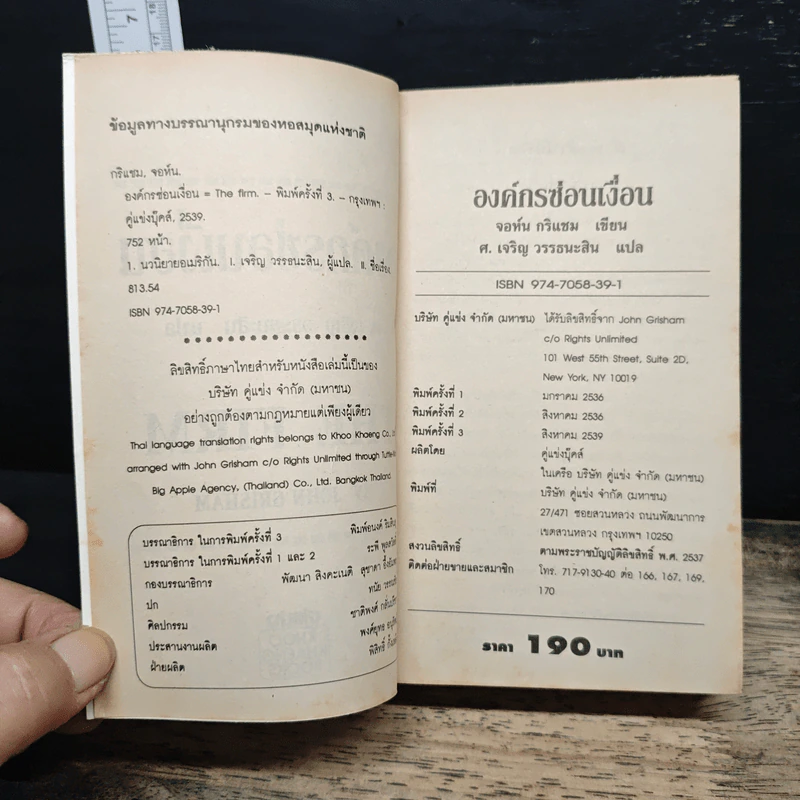 ข้อมูลทางบรรณานุกรมของหอสมุดแห่งชาติ
กริแชม, จอห์น.
องค์กรซ่อนเงื่อน = The firm. – พิมพ์ครั้งที่ 3. – กรุงเทพฯ :
คู่แข่งบุ๊คส์, 2539.
752 หน้า.
1. นวนิยายอเมริกัน. I. เจริญ วรรธนะสิน, ผู้แปล. II. ชื่อเรื่อง.
813.54
ISBN 974-7058-39-1
ลิขสิทธิ์ภาษาไทยสำหรับหนังสือเล่มนี้เป็นของ
บริษัท คู่แข่ง จำกัด (มหาชน)
อย่างถูกต้องตามกฎหมายแต่เพียงผู้เดียว
Thai language translation rights belongs to Khoo Khaeng Co.,
arranged with John Grisham c/o Rights Unlimited through
Big Apple Agency, (Thailand) Co., Ltd. Bangkok Thailand.
บรรณาธิการ ในการพิมพ์ครั้งที่ 3 พิมพ์อนงค์
บรรณาธิการ ในการพิมพ์ครั้งที่ 1 และ 2 ระพี
กองบรรณาธิการ พัฒนา สิงคะเนติ สุชาดา
ปก ทนัย
ศิลปกรรม ชาติพงศ์
ประสานงานผลิต พงศ์ยุทธ
ฝ่ายผลิต พิสิทธิ์
องค์กรซ่อนเงื่อน
จอห์น กริแชม เขียน
ศ. เจริญ วรรธนะสิน แปล
ISBN 974-7058-39-1
บริษัท คู่แข่ง จำกัด (มหาชน) ได้รับลิขสิทธิ์จาก John Grisham
c/o Rights Unlimited
101 West 55th Street, Suite 2D,
New York, NY 10019
พิมพ์ครั้งที่ 1 มกราคม 2536
พิมพ์ครั้งที่ 2 สิงหาคม 2536
พิมพ์ครั้งที่ 3 สิงหาคม 2539
ผลิตโดย คู่แข่งบุ๊คส์
ในเครือ บริษัท คู่แข่ง จำกัด (มหาชน)
พิมพ์ที่ บริษัท คู่แข่ง จำกัด (มหาชน)
27/471 ซอยสวนหลวง ถนนพัฒนาการ
เขตสวนหลวง กรุงเทพฯ 10250
สงวนลิขสิทธิ์ ตามพระราชบัญญัติลิขสิทธิ์ พ.ศ. 2537
ติดต่อฝ่ายขายและสมาชิก โทร. 717-9130-40 ต่อ 166, 167, 169,
170
ราคา 190 บาท